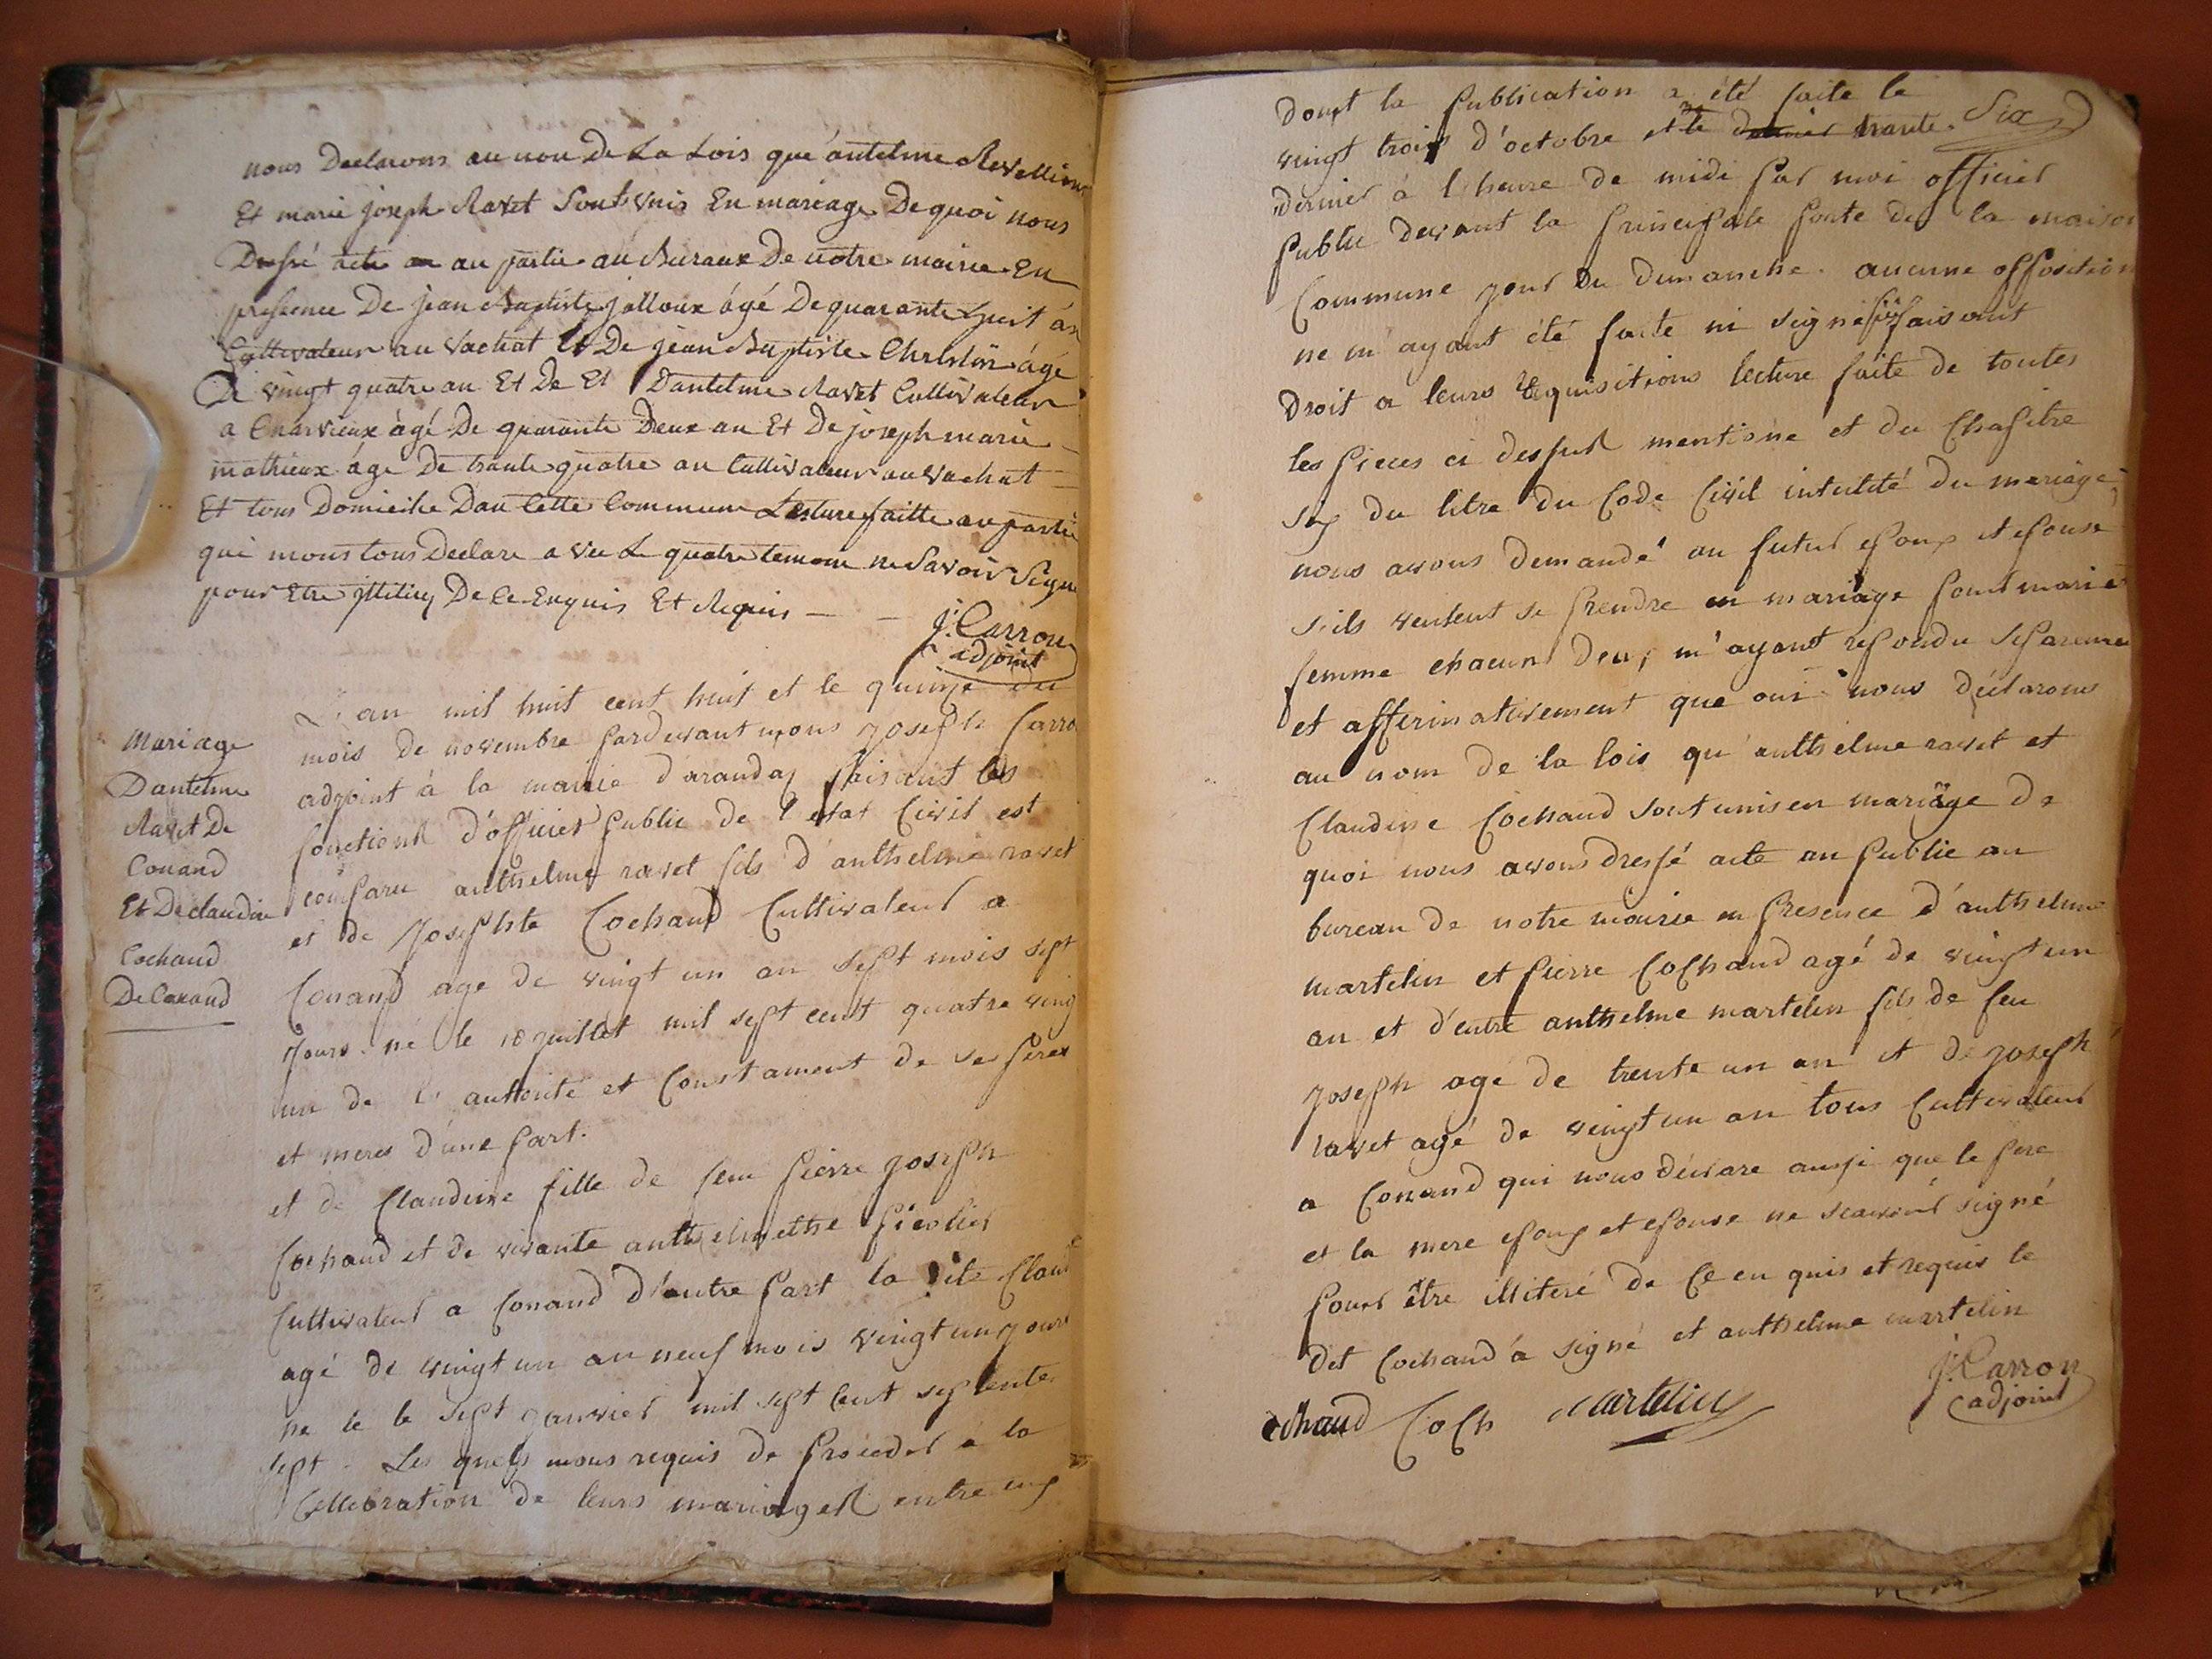 nous Declarons au non De La Lois que antelme Revellion
Et marie joseph Ravet Sont Vnis En mariage De quoi nous
Dressé acte au partie au Buraux De notre mairie En
pressence De jean Baptiste jalloux âgé De quarante huit án
Cultivateur au Vachat Et De jean Baptiste Christin âgé
De vingt quatre an Et De Et Dantelme Ravet Cultivateur
a Charvieux âgé De quarante Deux an Et De joseph marie
mathieux âgé De trante quatre an Cultivateur au Vachat
Et tous Domicile Dan Cette Commune Lesture faitte au partie
qui mous tous Declare a Vec L quatre temoin ne Savoir Signe
pour Etre De Ce Enquis Et Requis
j. Carron
adjoint
Mariage
Dantelme
Ravet De
Conand
Et De claudine
Cochand
De Conand
L'an mil huit cent huit et le quinze du
mois de novembre pardevant nous joseph Carro
adjoint à la mairie d'aranday faisant les
fonctions d'officier public de l'etat Civil est
comparu anthelme ravet fils d'anthelme ravet
et de Josephte Cochand Cultivateur a
Conand age de vingt un an sept mois sept
jours né le 18 juillet mil sept cent quatre ving
un de l'autorité et Constament de ses peres
et meres d'une part.
et de Claudine fille de feu pierre joseph
Cochand et de vivante anthelmethe
Cultivateur a Conand d'autre part la dite Claud
agé de vingt un an neuf mois vingt un jours
ne le le sept janvier mil sept cent septente
sept. Les quels mous requis de proceder a la
Cellebration de leurs mariages entre eux
dont la publication a été faite le
vingt trois d'octobre et le dernier trante Six
dernier à l'heure de midi par moi officier
public devant la principale porte de la maison
Commune jour du dimanche. aucune opposition
ne m'ayant été faite ni signifié faisant
Droit a leurs requisitions lecture faite de toutes
les pieces ci dessus mentioné et du Chapitre
six du litre du Code Civil intutité du mariage
nous avons demandé au futur epoux et epouse
s'ils veulent se prendre en mariage pour marié
femme chacun deu, m'ayant repondu separeme
et afferimativement que oui nous déclarons
au nom de la lois qu'anthelme ravet et
Claudine Cochand sont unis en mariage de
quoi nous avons dressé acte au public au
bureau de notre mairie en presence d'anthelme
martelin et pierre Cochand agé de vingt un
an et d'entre anthelme martelin fils de feu
joseph age de trente un an et de joseph
ravet agé de vingt un an tous Cultivateur
a Conand qui nous déclare aussi que le pere
et la mere epoux et epouse ne scavoir signé
pour être illiteré de Ce en quis et requis le
dit Cochand a signé et anthelme martelin
j. Carron
adjoint
Cochand Coch martelin